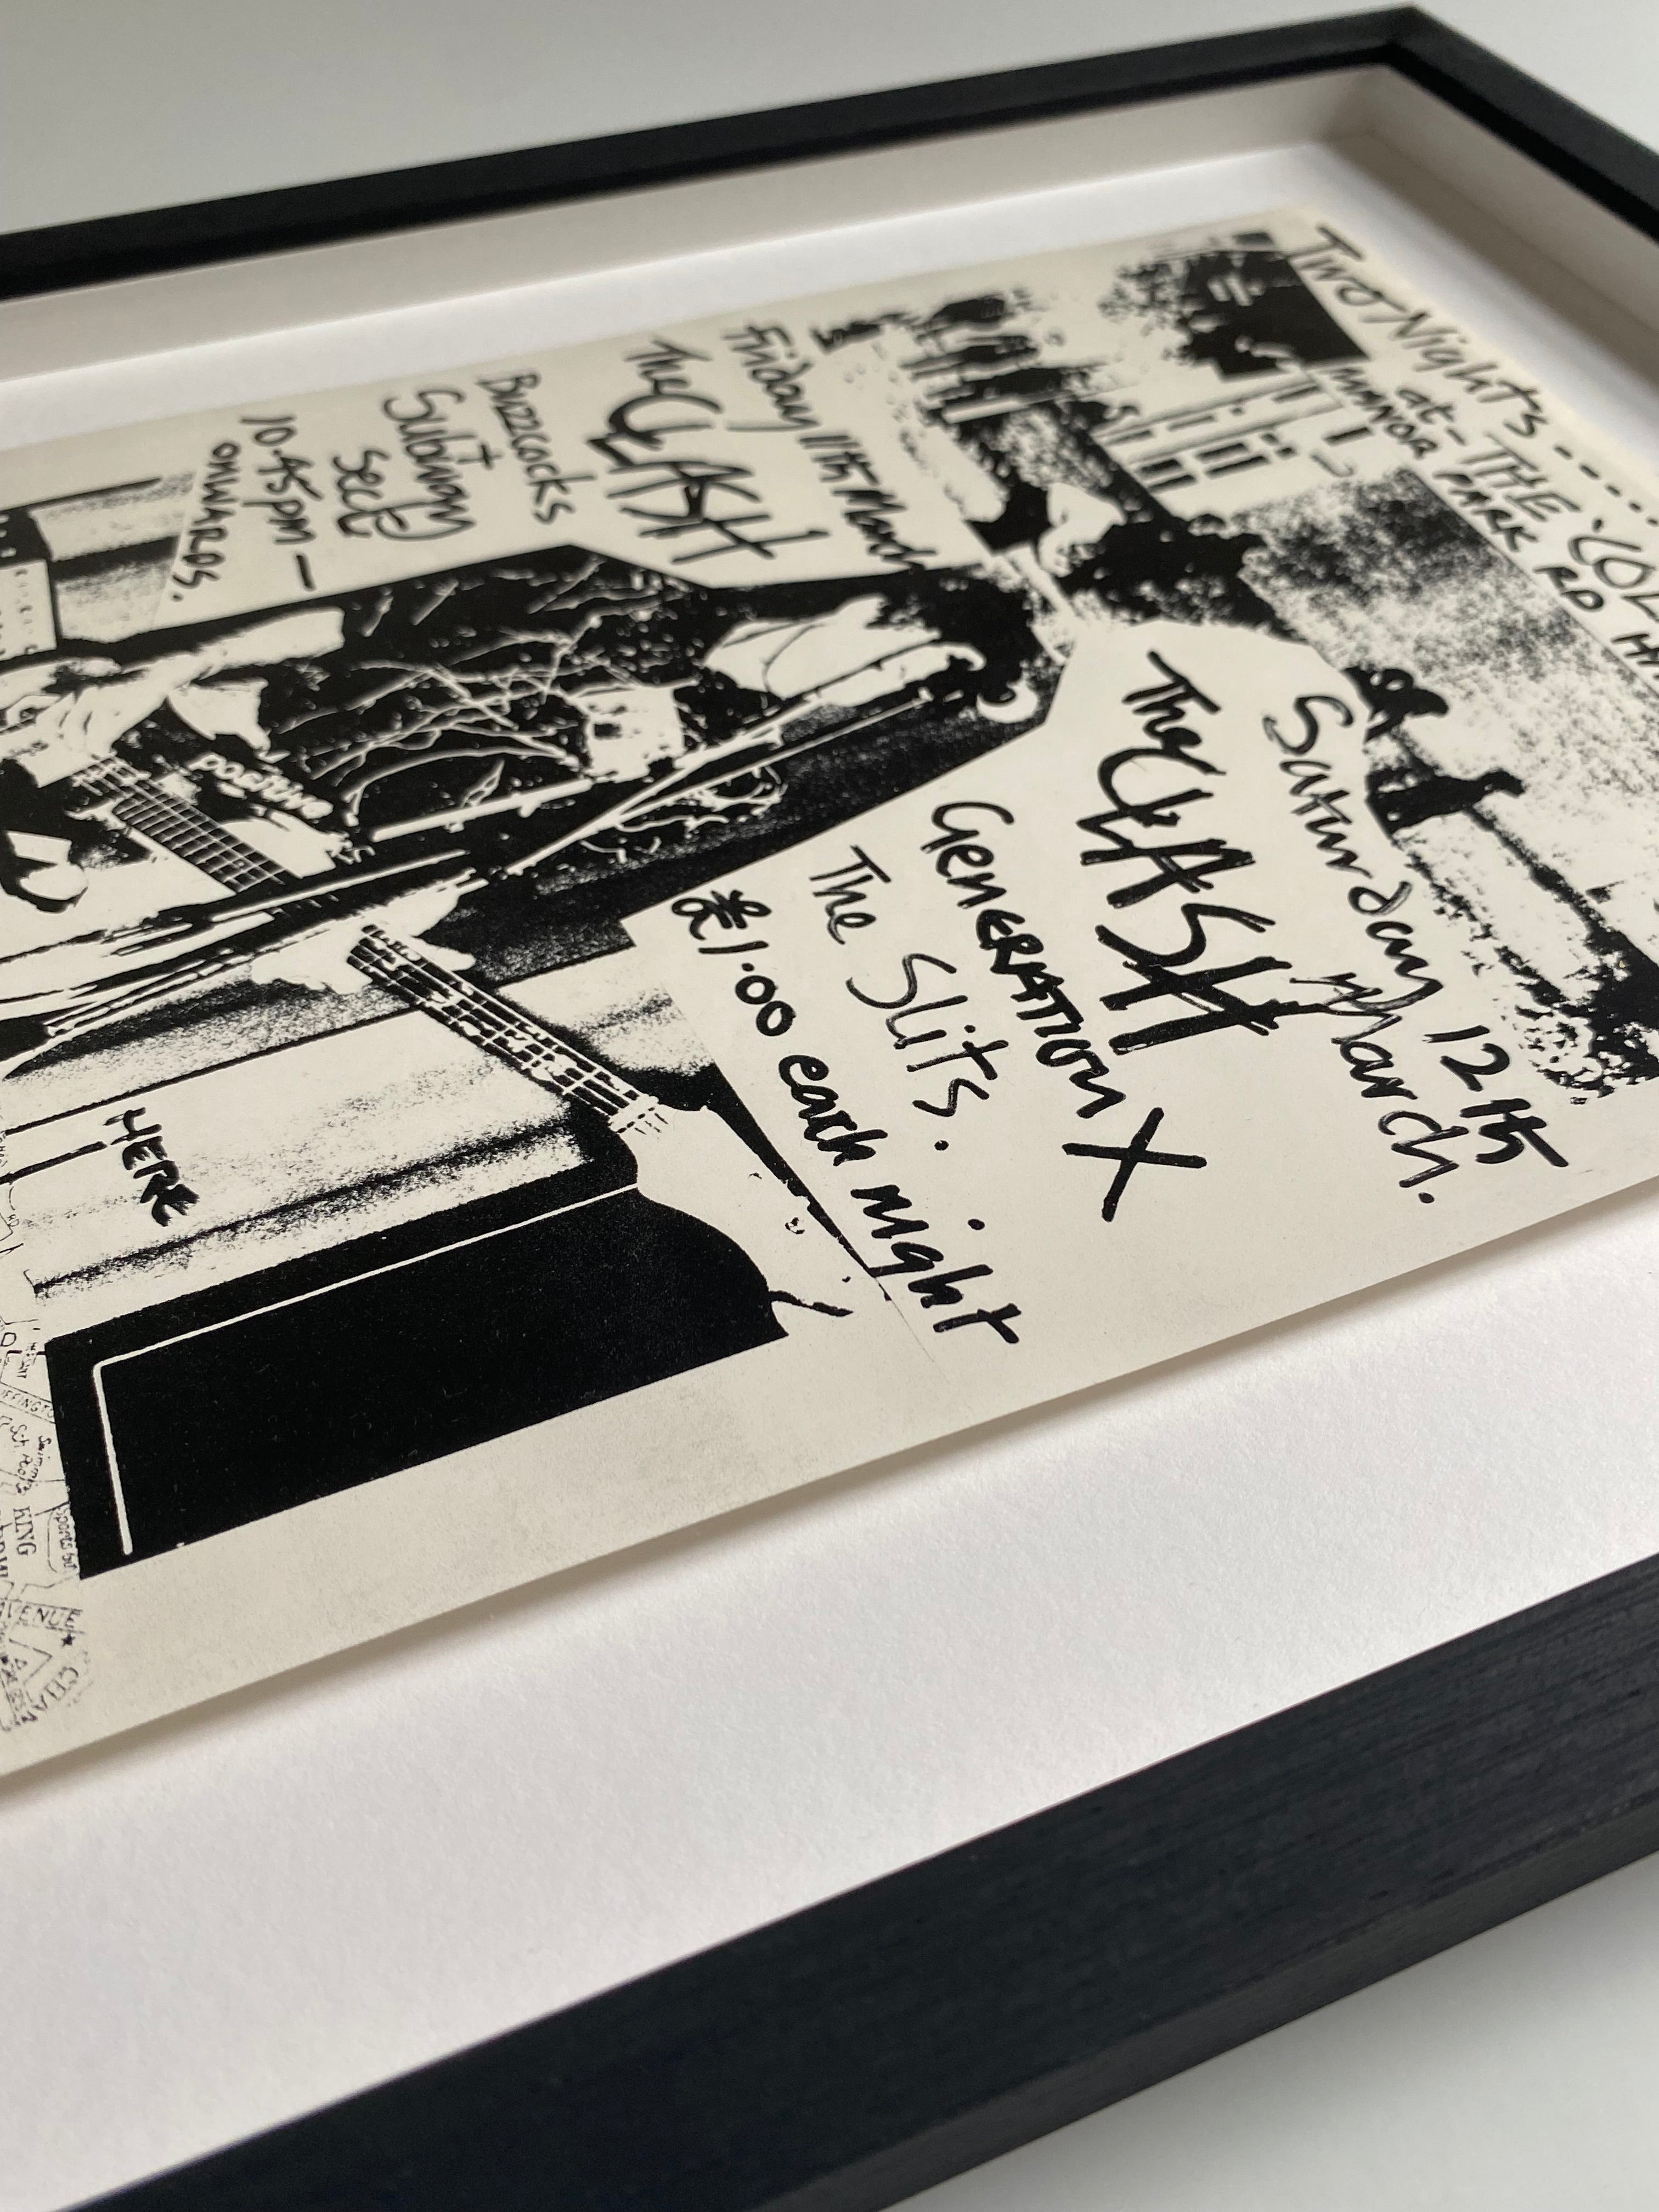 Two Nights -----
at - THE 'COL
MANOR PARK RD HA
Friday 11th March
The CLASH
Buzzcocks
Subway
Sect
10.45pm -
ONWARDS.
Saturday 12th
March.
The CLASH
GENERATION X
The Slits.
£1.00 each night
positive
HERE
KING
AVENUE
CHA